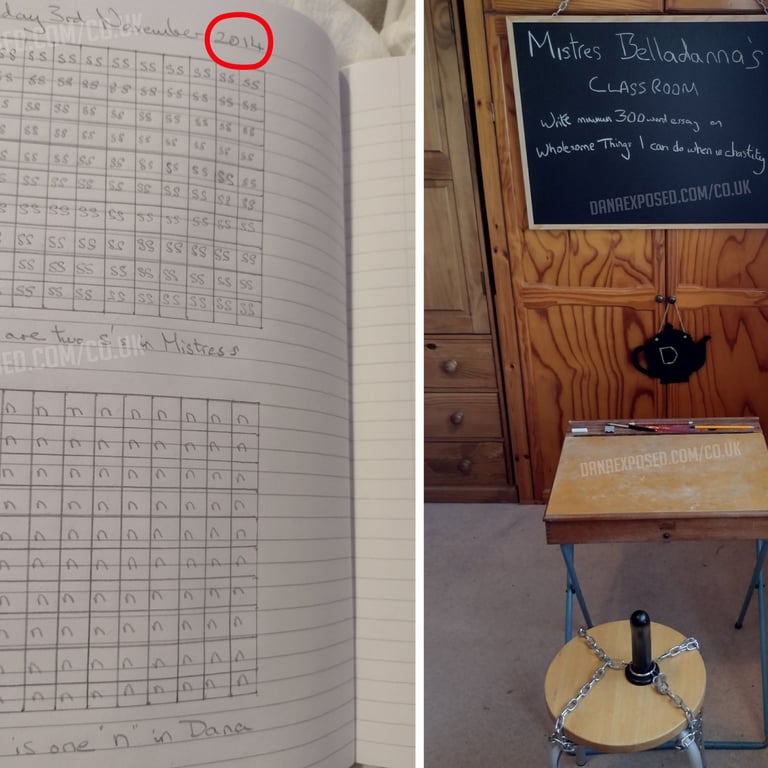 day 3rd November 2014
ss ss ss ss ss ss ss ss ss ss
s ss ss ss ss ss ss ss ss ss
s ss ss ss ss ss ss ss ss ss
s ss ss ss ss ss ss ss ss ss
s ss ss ss ss ss ss ss ss ss
s ss ss ss ss ss ss ss ss ss
s ss ss ss ss ss ss ss ss ss
s ss ss ss ss ss ss ss ss ss
ss ss ss ss ss ss ss ss ss
ss ss ss ss ss ss ss ss ss
are two s's in Mistress
n n n n n n n n n
n n n n n n n n n
n n n n n n n n n
n n n n n n n n n
n n n n n n n n n
n n n n n n n n n
n n n n n n n n n
n n n n n n n n n
n n n n n n n n n
n n n n n n n n n
is one "n" in Dana
SED.COM/CO.UK
Mistres Belladanna's
CLASSROOM
Write minimum 300 word essay on
Wholesome Things I can do when in chastity
DANAEXPOSED.COM/CO.UK
D
DANAEXPOSED.COM/CO.UK